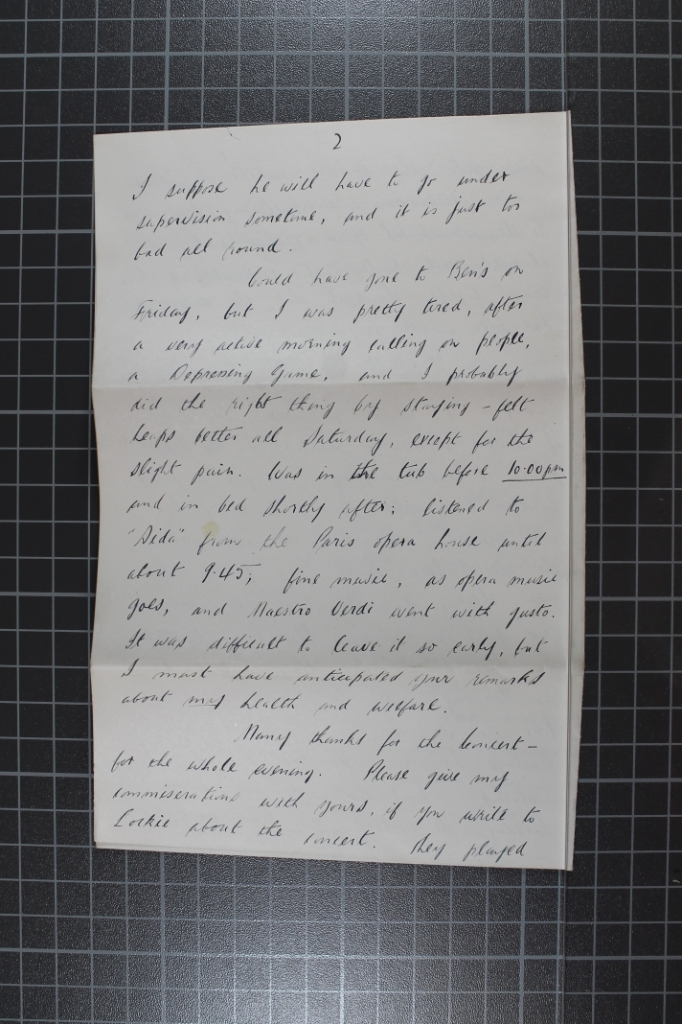 2
I suppose he will have to go under
supervision sometime, and it is just too
bad all round.
Could have gone to Ben's on
Friday, but I was pretty tired, after
a very active morning calling on people,
a Depressing Game, and I probably
did the right thing by staying - felt
heaps better all Saturday, except for the
slight pain. Was in the tub before 10.00pm
and in bed shortly after; listened to
"Aida" from the Paris opera house until
about 9.45; fine music, as opera music
goes, and Maestro Verdi went with gusto.
It was difficult to leave it so early, but
I must have anticipated your remarks
about my health and welfare.
Many thanks for the Concert -
for the whole evening. Please give my
commiserations with yours, if you write to
Lockie about the concert. They played